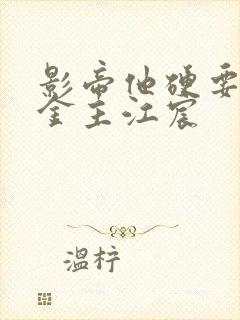 影帝他硬要
金主江宸
温柠